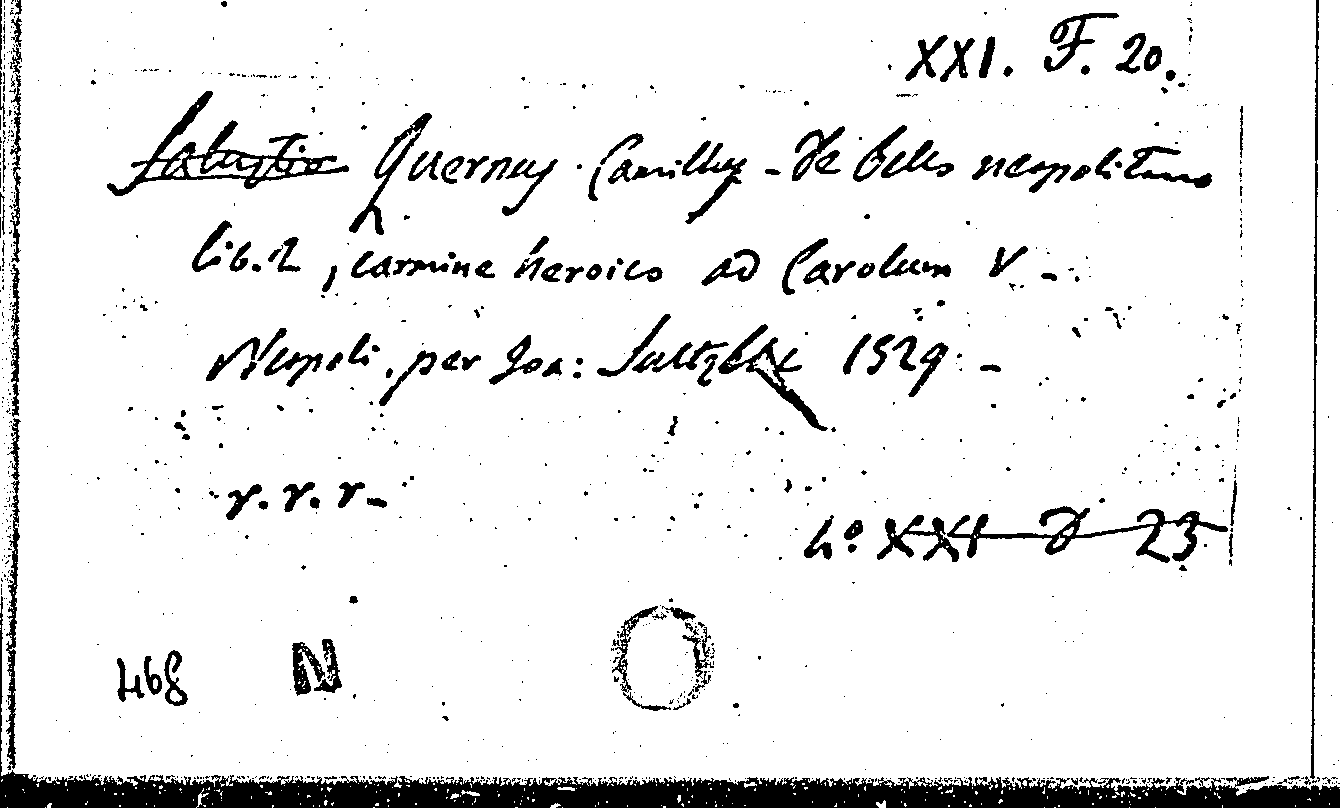 XXI. F. 20.
Quernus Camillus - De bello neopolitano
lib. 2, carmine heroico ad Carolum V -
Neapoli, per Joa: Sultzbac 1529 -
r. r. r -
4º XXI D 23
468 N